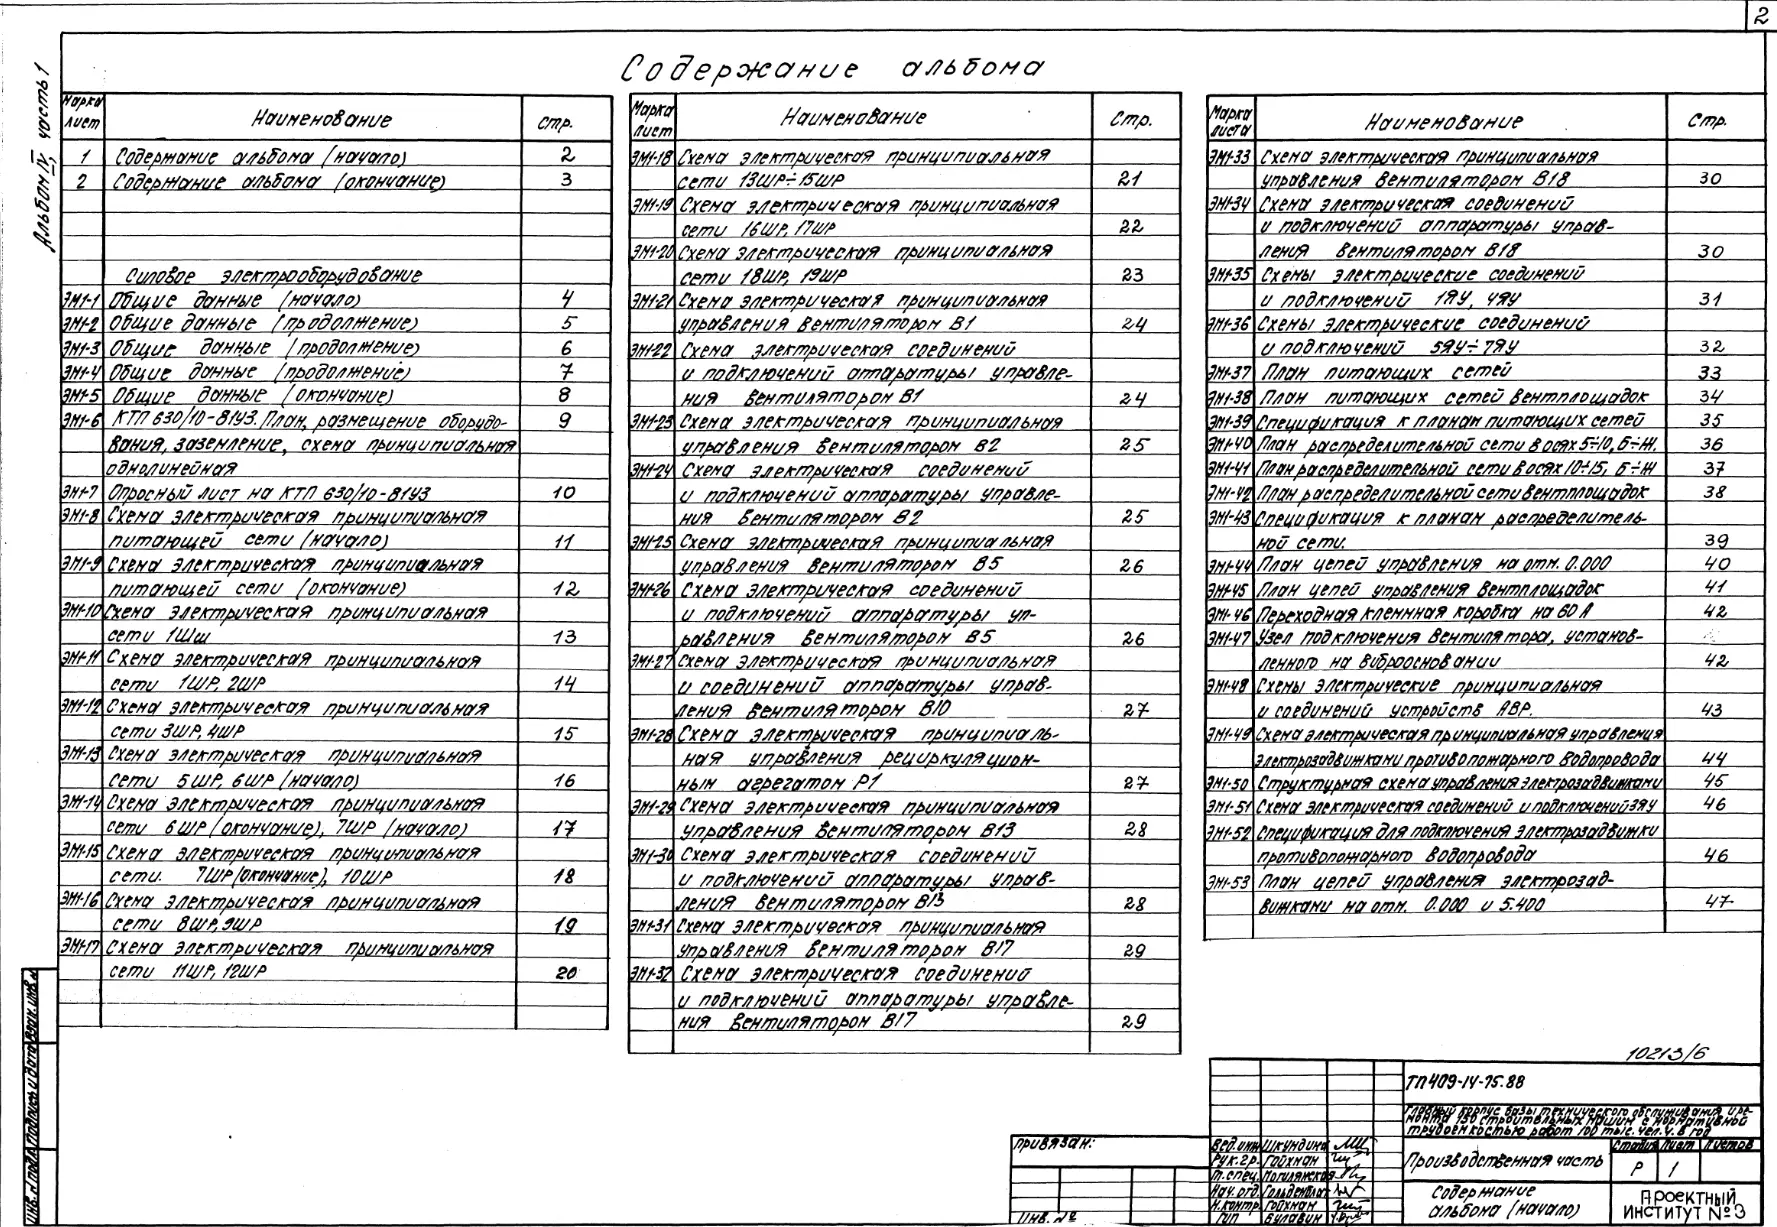 2
Альбом IV, часть 1
Содержание альбома
Марка лист Наименование Стр.
1 Содержание альбома (начало) 2
2 Содержание альбома (окончание) 3
Силовое электрооборудование
ЭМ1-1 Общие данные (начало) 4
ЭМ1-2 Общие данные (продолжение) 5
ЭМ1-3 Общие данные (продолжение) 6
ЭМ1-4 Общие данные (продолжение) 7
ЭМ1-5 Общие данные (окончание) 8
ЭМ1-6 КТП 630/10-81У3. План, размещение оборудо- 9
вания, заземление, схема принципиальная
однолинейная
ЭМ1-7 Опросный лист на КТП 630/10-81У3 10
ЭМ1-8 Схема электрическая принципиальная
питающей сети (начало) 11
ЭМ1-9 Схема электрическая принципиальная
питающей сети (окончание) 12
ЭМ1-10 Схема электрическая принципиальная
сети 1Шш 13
ЭМ1-11 Схема электрическая принципиальная
сети 1ШР, 2ШР 14
ЭМ1-12 Схема электрическая принципиальная
сети 3ШР, 4ШР 15
ЭМ1-13 Схема электрическая принципиальная
сети 5ШР, 6ШР (начало) 16
ЭМ1-14 Схема электрическая принципиальная
сети 6ШР (окончание), 7ШР (начало) 17
ЭМ1-15 Схема электрическая принципиальная
сети. 7ШР (окончание), 10ШР 18
ЭМ1-16 Схема электрическая принципиальная
сети 8ШР, 9ШР 19
ЭМ1-17 Схема электрическая принципиальная
сети 11ШР, 12ШР 20
Марка лист Наименование Стр.
ЭМ1-18 Схема электрическая принципиальная
сети 13ШР÷15ШР 21
ЭМ1-19 Схема электрическая принципиальная
сети 16ШР, 17ШР 22
ЭМ1-20 Схема электрическая принципиальная
сети 18ШР, 19ШР 23
ЭМ1-21 Схема электрическая принципиальная
управления вентилятором В1 24
ЭМ1-22 Схема электрическая соединений
и подключений аппаратуры управле-
ния вентилятором В1 24
ЭМ1-23 Схема электрическая принципиальная
управления вентилятором В2 25
ЭМ1-24 Схема электрическая соединений
и подключений аппаратуры управле-
ния вентилятором В2 25
ЭМ1-25 Схема электрическая принципиальная
управления вентилятором В5 26
ЭМ1-26 Схема электрическая соединений
и подключений аппаратуры уп-
равления вентилятором В5 26
ЭМ1-27 Схема электрическая принципиальная
и соединений аппаратуры управ-
ления вентилятором В10 27
ЭМ1-28 Схема электрическая принципиаль-
ная управления рециркуляцион-
ным агрегатом Р1 27
ЭМ1-29 Схема электрическая принципиальная
управления вентилятором В13 28
ЭМ1-30 Схема электрическая соединений
и подключений аппаратуры управ-
ления вентилятором В13 28
ЭМ1-31 Схема электрическая принципиальная
управления вентилятором В17 29
ЭМ1-32 Схема электрическая соединений
и подключений аппаратуры управле-
ния вентилятором В17 29
Марка листа Наименование Стр.
ЭМ1-33 Схема электрическая принципиальная
управления вентилятором В18 30
ЭМ1-34 Схема электрическая соединений
и подключений аппаратуры управ-
ления вентилятором В18 30
ЭМ1-35 Схемы электрические соединений
и подключений 1ЯУ, 4ЯУ 31
ЭМ1-36 Схемы электрические соединений
и подключений 5ЯУ÷7ЯУ 32
ЭМ1-37 План питающих сетей 33
ЭМ1-38 План питающих сетей вентплощадок 34
ЭМ1-39 Спецификация к планам питающих сетей 35
ЭМ1-40 План распределительной сети в осях 5÷10, Б÷Ж. 36
ЭМ1-41 План распределительной сети в осях 10÷15, Б÷Ж 37
ЭМ1-42 План распределительной сети вентплощадок 38
ЭМ1-43 Спецификация к планам распределитель-
ной сети. 39
ЭМ1-44 План цепей управления на отм. 0.000 40
ЭМ1-45 План цепей управления вентплощадок 41
ЭМ1-46 Переходная клеммная коробка на 60А 42
ЭМ1-47 Узел подключения вентилятора, установ-
ленного на виброосновании 42
ЭМ1-48 Схемы электрические принципиальная
и соединений устройств АВР. 43
ЭМ1-49 Схема электрическая принципиальная управления
электрозадвижками противопожарного водопровода 44
ЭМ1-50 Структурная схема управления электрозадвижками 45
ЭМ1-51 Схема электрическая соединений и подключений 3ЯУ 46
ЭМ1-52 Спецификация для подключения электрозадвижки
противопожарного водопровода 46
ЭМ1-53 План цепей управления электрозад-
вижками на отм. 0.000 и 5.400 47
10213/6
ТП 409-14-75.88
Главный корпус базы технического обслуживания и ре-
монта 150 строительных машин с нормативной
трудоемкостью работ 100 тыс. чел. ч. в год
Привязан:
Инв. №
Вед. инж Шкундина
Рук. гр. Гойхман
Гл. спец. Могилянская
Нач. отд. Гольденблат
Н. контр Гойхман
ГИП Булавин
Производственная часть
Стадия Лист Листов
Р 1
Содержание
альбома (начало)
Проектный
институт №3
Инв. № подл. Подпись и дата Взам. инв. №